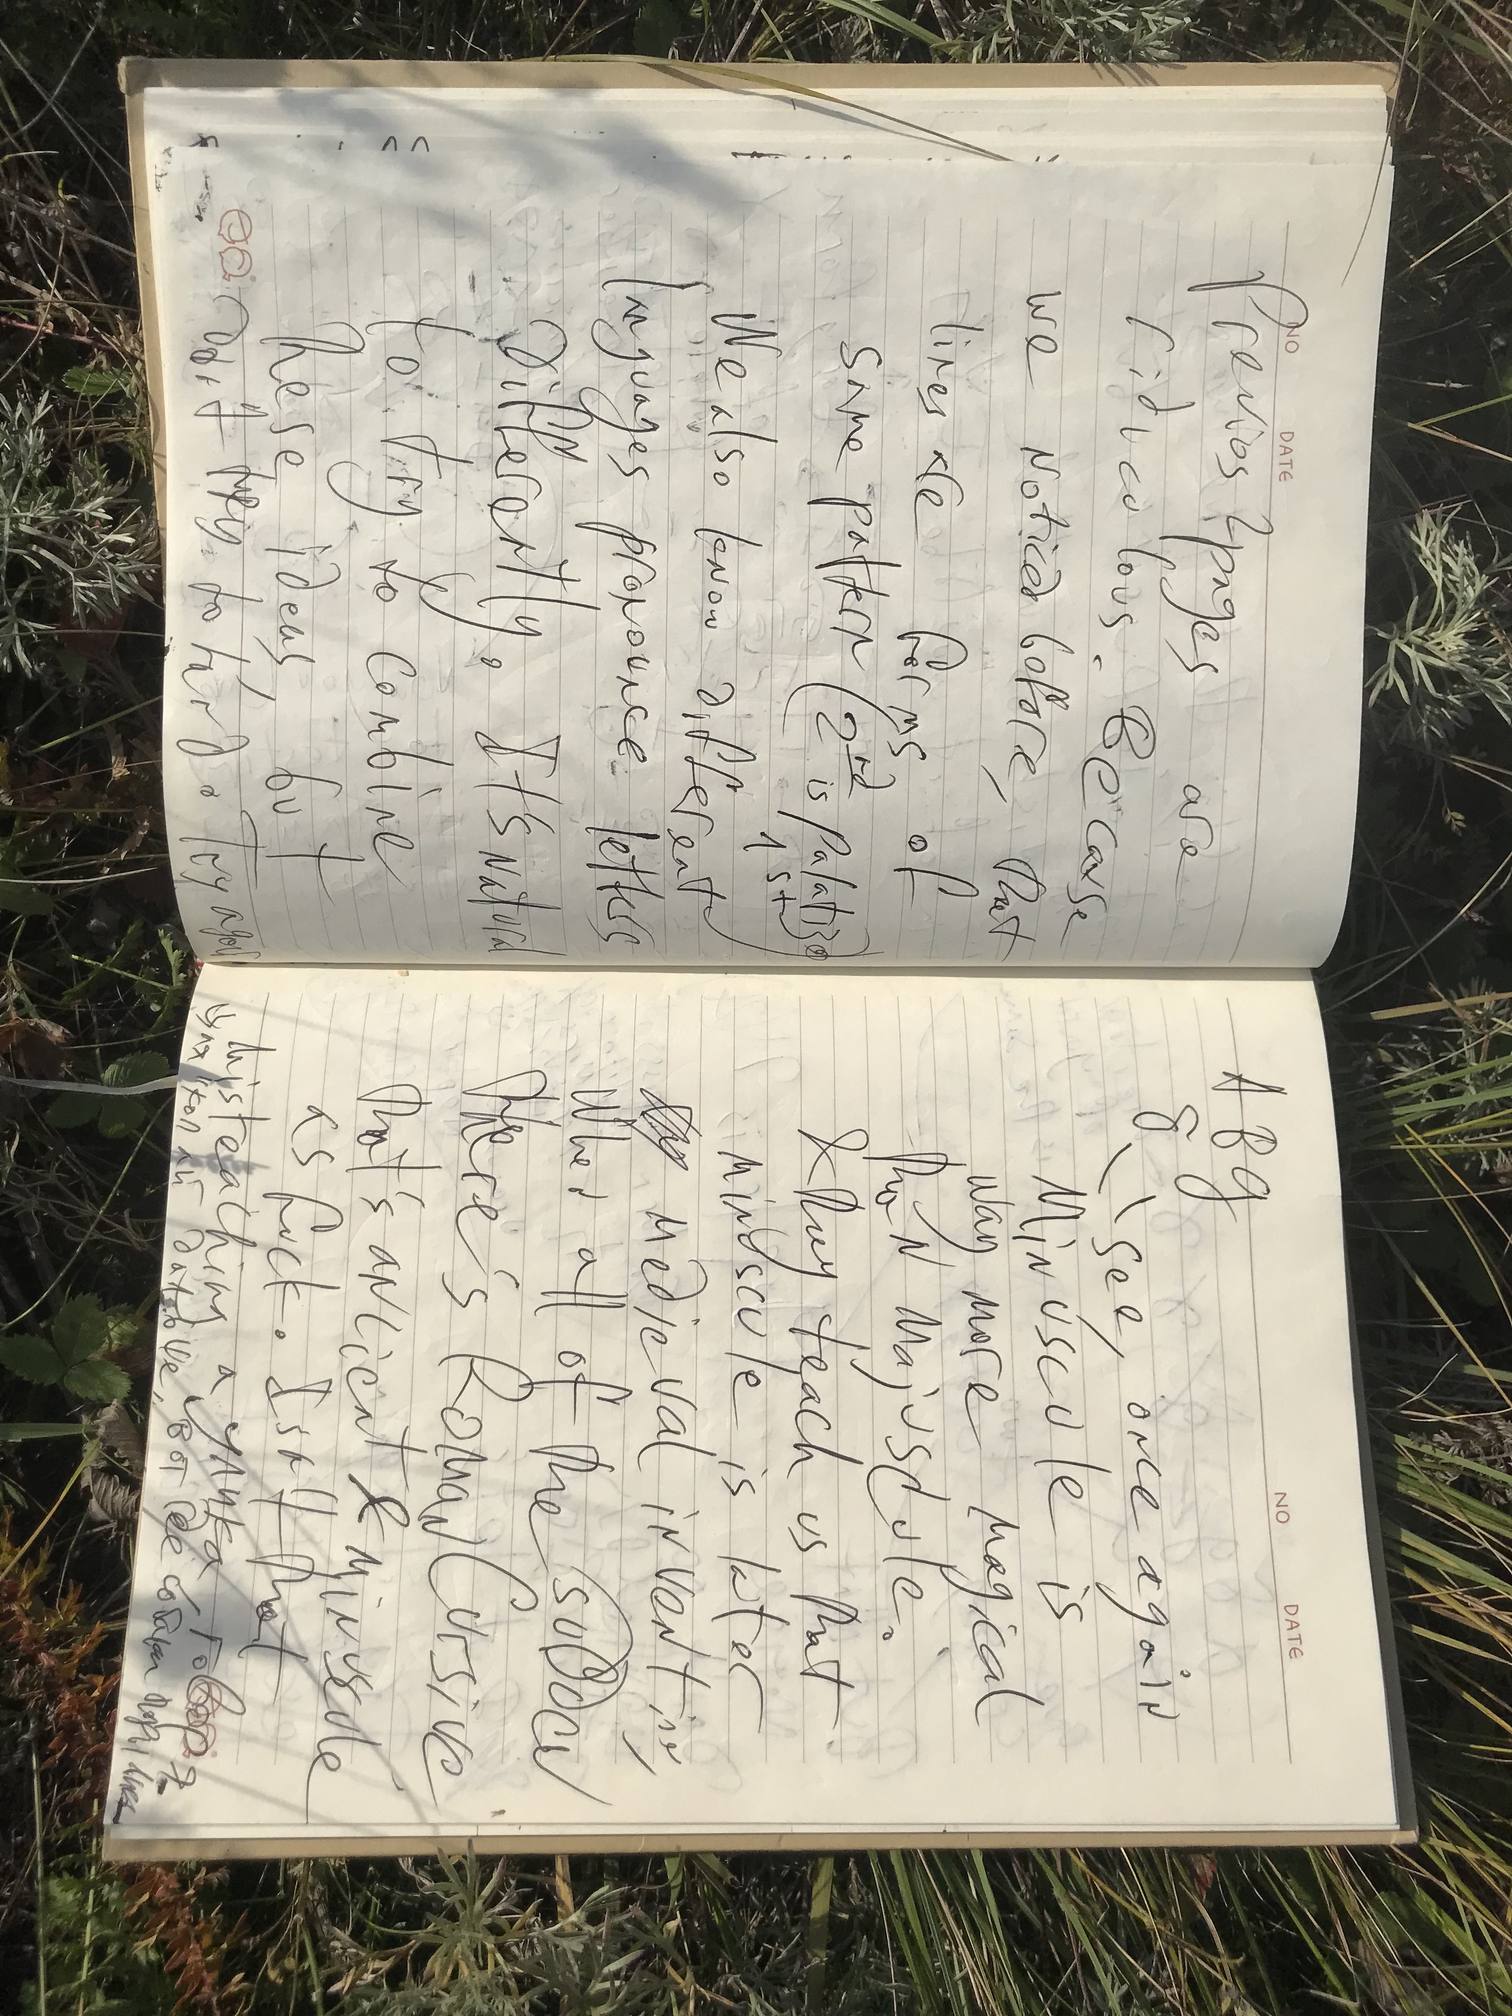 NO DATE
Previos 2 pages are
ridiculous. Because
we Noticed before, that
lines are forms of
same pattern (2nd is palatized
1st)
We also know different
languages pronounce letters
Differently. It's natural
to try to combine
these ideas, but
don't try to hard. Try again
NO DATE
ABg
8
see, once again
Minuscule is
way more magical
than Majuscule.
& they teach us that
minuscule is later
medieval invention,
when all of the sudden
there's Roman Cursive
that's ancient & minuscule
as fuck. Isn't that
misteaching a